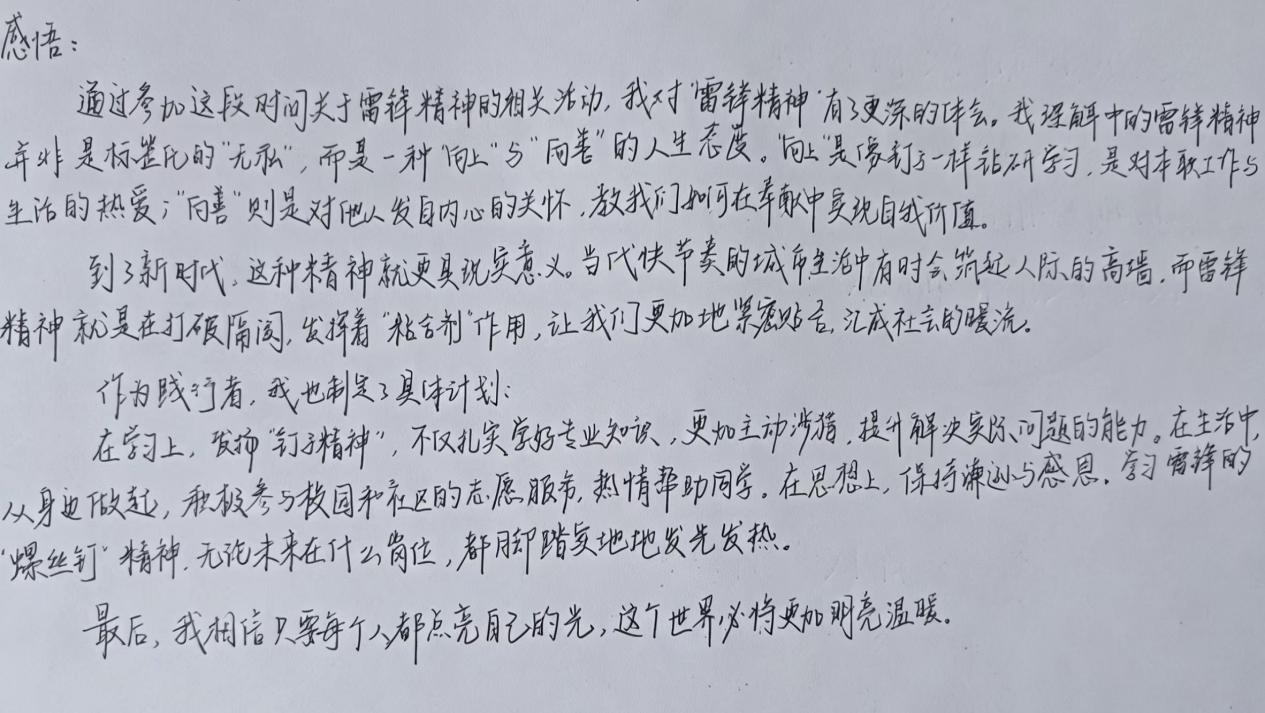 感悟：
通过参加这段时间关于雷锋精神的相关活动，我对"雷锋精神"有了更深的体会。我理解中的雷锋精神
并非是标签化的"无私"，而是一种"向上"与"向善"的人生态度。"向上"是像钉子一样钻研学习，是对本职工作与
生活的热爱；"向善"则是对他人发自内心的关怀，教我们如何在奉献中实现自我价值。
到了新时代，这种精神就更具现实意义。当代快节奏的城市生活中有时会筑起人际的高墙，而雷锋
精神就是在打破隔阂，发挥着"粘合剂"作用，让我们更加地紧密贴合，汇成社会的暖流。
作为践行者，我也制定了具体计划：
在学习上，发扬"钉子精神"，不仅扎实学好专业知识，更加主动涉猎，提升解决实际问题的能力。在生活中，
从身边做起，积极参与校园和社区的志愿服务，热情帮助同学。在思想上，保持谦逊与感恩，学习雷锋的
"螺丝钉"精神，无论未来在什么岗位，都脚踏实地地发光发热。
最后，我相信只要每个人都点亮自己的光，这个世界必将更加明亮温暖。